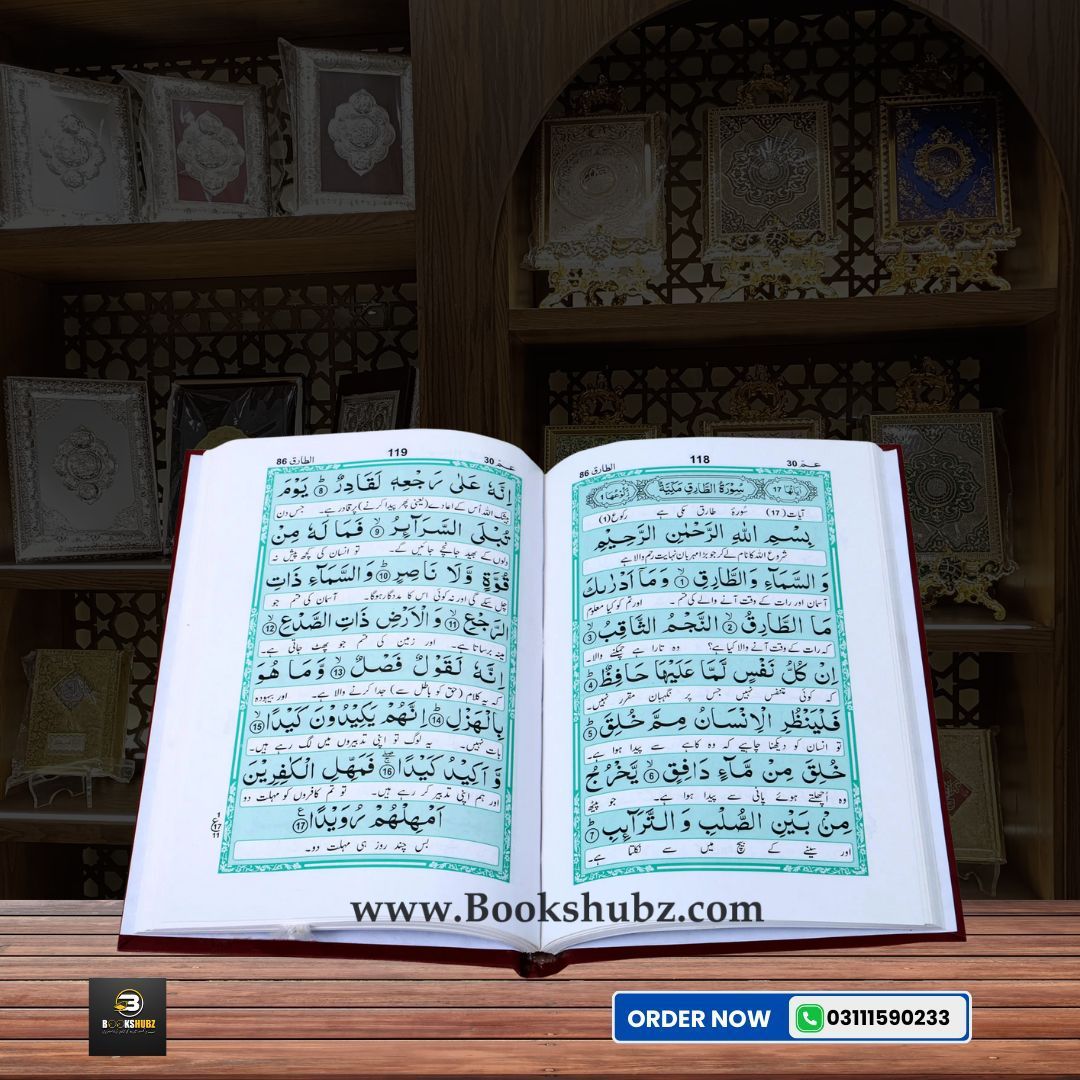 عـمّ 30
118
الطارق 86
اٰیَاتُہَا 17
سُوْرَۃُ الطَّارِقِ مَكِّيَّةٌ
رُكُوْعُهَا ۱
آیات (17) سُورۃ طارق مکی ہے رکوع (1)
بِسْمِ اللّٰهِ الرَّحْمٰنِ الرَّحِيْمِ
شروع اللہ کا نام لے کر جو بڑا مہربان نہایت رحم والا ہے
وَ السَّمَآءِ وَالطَّارِقِ ① وَمَآ اَدْرٰىكَ
آسمان اور رات کے وقت آنے والے کی قسم۔ اور تم کو کیا معلوم
مَا الطَّارِقُ ② النَّجْمُ الثَّاقِبُ ③
کہ رات کے وقت آنے والا کیا ہے؟ وہ تارا ہے چمکنے والا۔
اِنْ كُلُّ نَفْسٍ لَّمَّا عَلَيْهَا حَافِظٌ ④
کہ کوئی متنفس نہیں جس پر نگہبان مقرر نہیں۔
فَلْيَنْظُرِ الْاِنْسَانُ مِمَّ خُلِقَ ⑤
تو انسان کو دیکھنا چاہیے کہ وہ کاہے سے پیدا ہوا ہے۔
خُلِقَ مِنْ مَّآءٍ دَافِقٍ ⑥ يَّخْرُجُ
وہ اُچھلتے ہوئے پانی سے پیدا ہوا ہے۔ جو پیٹھ
مِنْۢ بَيْنِ الصُّلْبِ وَ التَّرَآئِبِ ⑦
اور سینے کے بیچ میں سے نکلتا ہے۔
عـمّ 30
119
الطارق 86
اِنَّهٗ عَلٰى رَجْعِهٖ لَقَادِرٌ ⑧ يَوْمَ
بیشک اللہ اُس کے اعادے (یعنی پھر پیدا کرنے) پر قادر ہے۔ جس دن
تُبْلَى السَّرَآئِرُ ⑨ فَمَا لَهٗ مِنْ
دلوں کے بھید جانچے جائیں گے۔ تو انسان کی کچھ پیش نہ
قُوَّةٍ وَّلَا نَاصِرٍ ⑩ وَالسَّمَآءِ ذَاتِ
چل سکے گی اور نہ کوئی اس کا مددگار ہوگا۔ آسمان کی قسم جو
الرَّجْعِ ⑪ وَالْاَرْضِ ذَاتِ الصَّدْعِ ⑫
مینہ برساتا ہے۔ اور زمین کی قسم جو پھٹ جاتی ہے۔
اِنَّهٗ لَقَوْلٌ فَصْلٌ ⑬ وَّمَا هُوَ
کہ یہ کلام (حق کو باطل سے) جدا کرنے والا ہے۔ اور بیہودہ
بِالْهَزْلِ ⑭ اِنَّهُمْ يَكِيْدُوْنَ كَيْدًا ⑮
بات نہیں۔ یہ لوگ تو اپنی تدبیروں میں لگ رہے ہیں۔
وَّ اَكِيْدُ كَيْدًا ⑯ فَمَهِّلِ الْكٰفِرِيْنَ
اور ہم اپنی تدبیر کر رہے ہیں۔ تو تم کافروں کو مہلت دو
اَمْهِلْهُمْ رُوَيْدًا ⑰
بس چند روز ہی مہلت دو۔
1
ع 17
11
www.Bookshubz.com
B
BOOKSHUBZ
ORDER NOW 03111590233